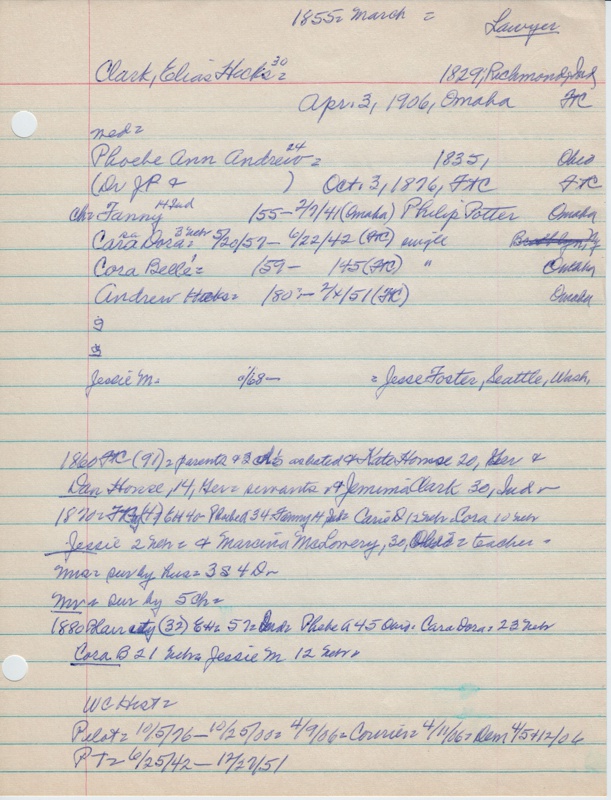 1855 = March =
Lawyer
Clark, Elias Hicks 30 = 1829, Richmond, Ind
Apr. 3, 1906, Omaha FC
med =
Phoebe Ann Andrew 24 = 1835, Ohio
(Dr JP & ) Oct. 3, 1876, FC FC
ch = Fanny H Ind /55 - 2/7/41 (Omaha) Philip Potter Omaha
Cara Dora = 3 Nebr 5/20/57 - 6/22/42 (FC) single Brooklyn, NY
Cora Belle = /59 - /45 (FC) " Omaha
Andrew Hicks = /80? - 2/4/51 (FC) Omaha
Jessie M = /68 - = Jesse Foster, Seattle, Wash.
1860 FC (91) = parents & 2 ch as listed & Kate House 20, Ger &
Dan House, 14, Ger = servants & Jemima Clark 30, Ind
1870 = EH 40 Phebe A 34 Fanny H Ind = Carie D 12 Nebr, Cora 10 Nebr
Jessie 2 Nebr = & Marcina McLowery, 30, Ohio = teacher =
Mrs = sur by hus = 3 S 4 D
Mr = sur by 5 ch =
1880 Blair city (32) EH = 57 = Ind = Phebe A 45 Ohio = Cara Dora = 23 Nebr
Cora B 21 Nebr = Jessie M 12 Nebr
WC Hist =
Pilot = 10/5/76 - 10/25/00 = 4/9/06 = Courier = 4/11/06 = Dem 4/5 & 12/06
PT = 6/25/42 - 12/27/51